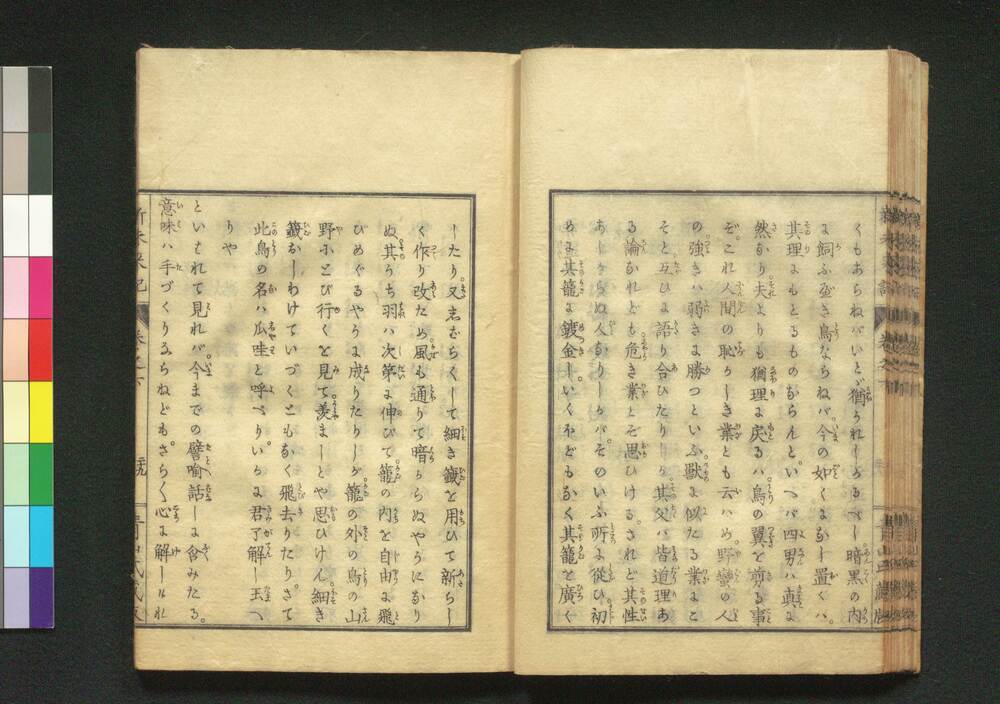 くもあらねバいとゞ猶うれしかるべし暗黒の内
に飼ふべき鳥ならねバ今の如くまなし置くハ。
其理にもとるものならんと。いへバ四男ハ真に
然なり夫よりも猶理に戻るハ。鳥の翼を剪る事
ぞ。これ人間の恥かしき業とも云ハめ野蠻の人
の強きハ弱きに勝つといふ獣に似たる業にこ
そと互ひに語り合ひたりしか。其父ハ皆道理あ
る論なれども危き業とぞ思ひける。されど其性
あしからぬ人なりしかバ。そのいふ所に従ひ初
めに其籠に鍍金し。いくほどもなく其籠を廣く
したり又志ばらくして細き籤を用ひて新らし
く作り改ため。風も通りて暗らからぬやうになり
ぬ其うち羽ハ次第に伸びて籠の内を自由に飛
びめぐるやうに成りたりしが籠の外の鳥の山
野にとび行くを見て。羨ましとや思ひけん細き
籤おしわけていづくともなく飛去りたり。さて
此鳥の名ハ瓜哇と呼べり。いかに君了解し玉へ
りや
といもれて見れバ今までの譬喩話しに含みたる。
意味ハ手づくりならねども。さらく心に解しけれ
新未来記
巻之下
青山氏蔵版